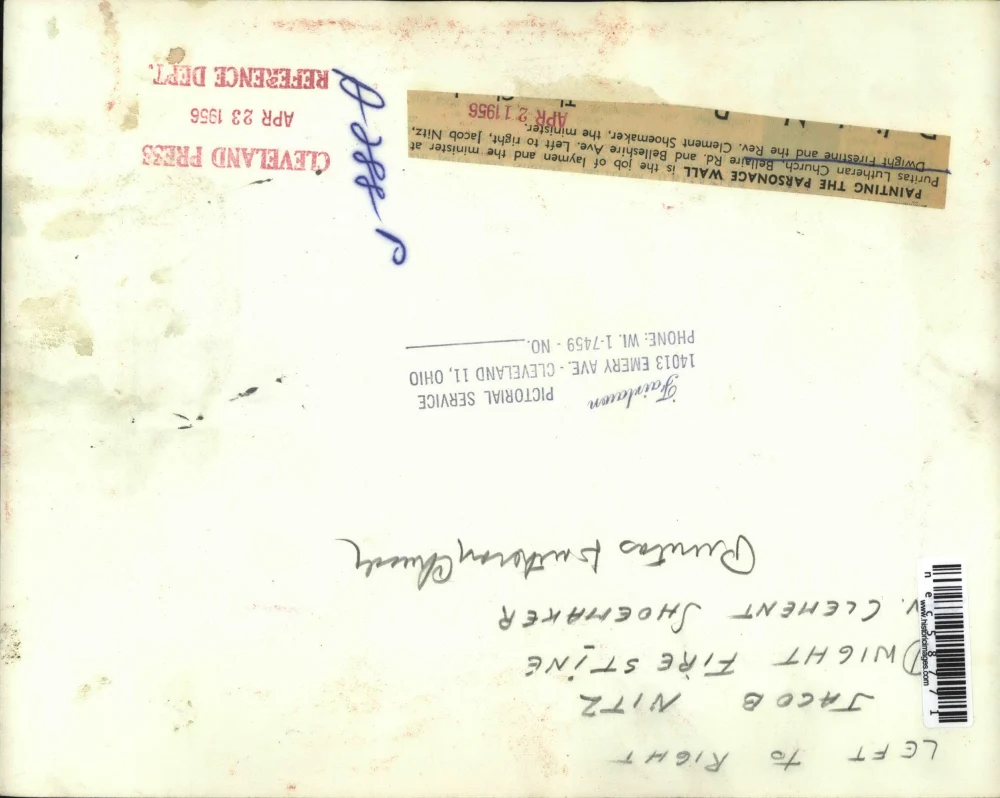 LEFT TO RIGHT
JACOB NITZ
DWIGHT FIRESTINE
V. CLEMENT SHOEMAKER
Puritas Lutheran Church
Fairlawn
PICTORIAL SERVICE
14013 EMERY AVE. - CLEVELAND 11, OHIO
PHONE: WI. 1-7459 - NO.
PAINTING THE PARSONAGE WALL is the job of laymen and the minister at
Puritas Lutheran Church, Bellaire Rd. and Belleshire Ave. Left to right, Jacob Nitz,
Dwight Firestine and the Rev. Clement Shoemaker, the minister.
APR 21 1956
CLEVELAND PRESS
APR 23 1956
REFERENCE DEPT.
www.historicimages.com